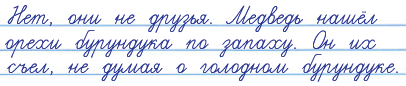 Нет, они не друзья. Медведь нашёл
орехи бурундука по запаху. Он их
съел, не думая о голодном бурундуке.